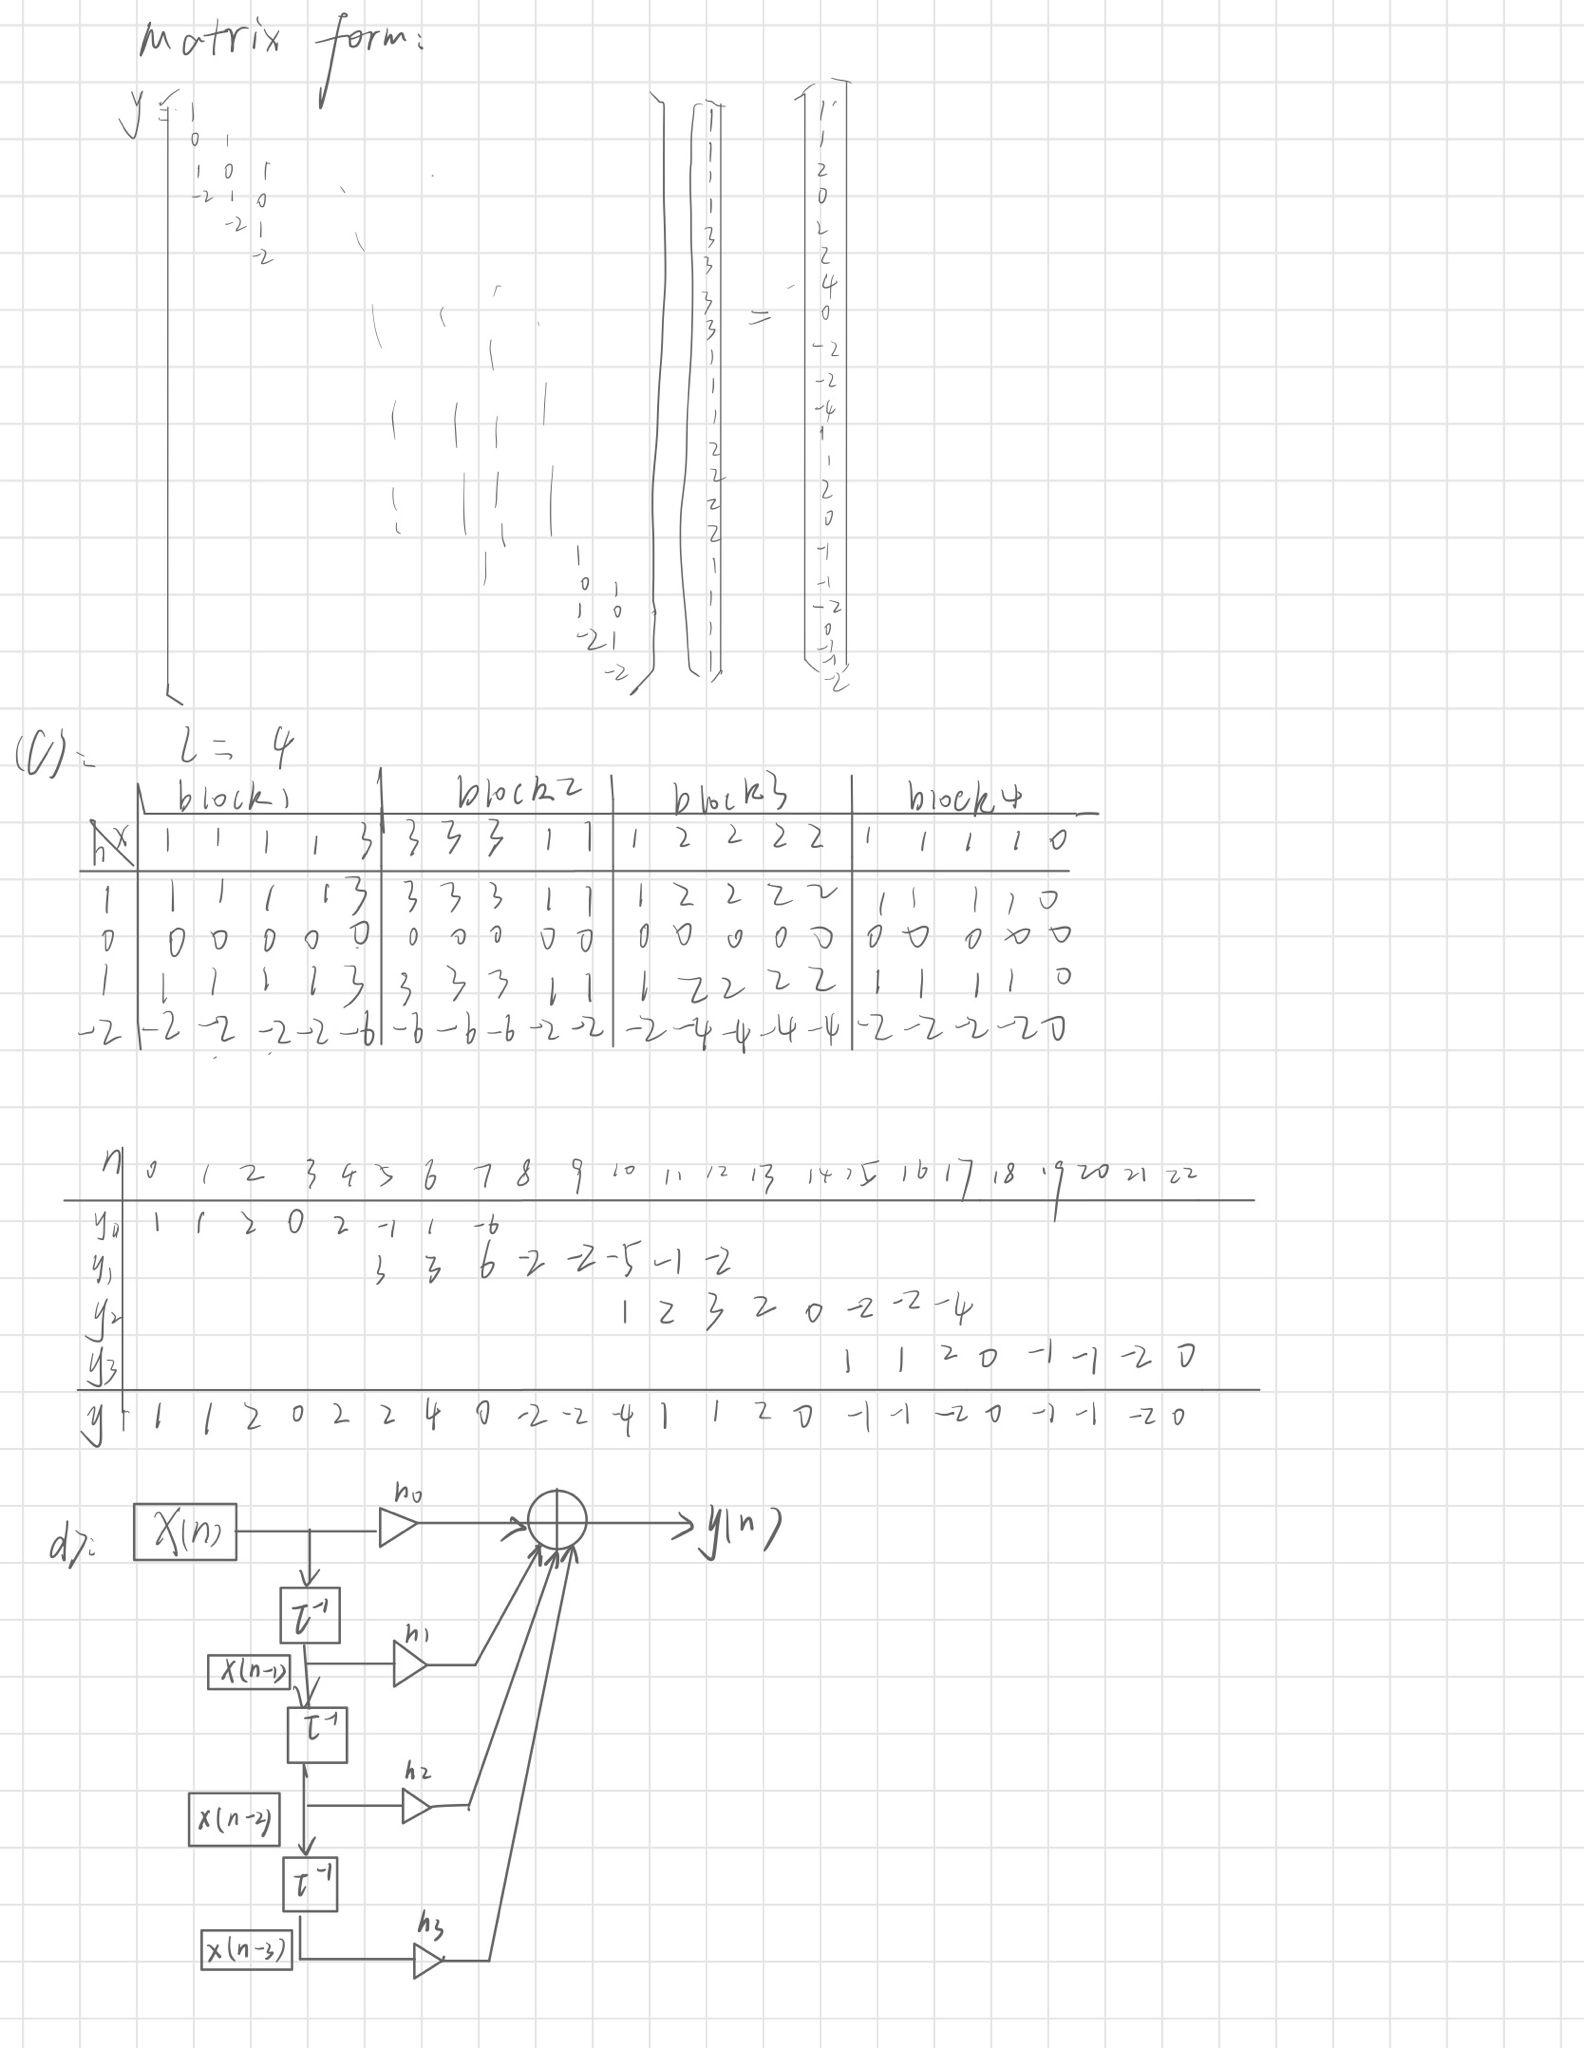 Matrix form:
y = 1
0 1
1 0 1
-2 1 0
-2 1
-2
1
0 1
1 0
-2 1
-2
1
1
1
1
3
3
3
3
1
1
1
2
2
2
2
1
1
1
1
=
1
1
2
0
2
2
4
0
-2
-2
-4
1
1
2
0
-1
-1
-2
0
-1
-1
-2
(C): L = 4
block1 block2 block3 block4
h x 1 1 1 1 3 3 3 3 1 1 1 2 2 2 2 1 1 1 1 0
1 1 1 1 1 3 3 3 3 1 1 1 2 2 2 2 1 1 1 1 0
0 0 0 0 0 0 0 0 0 0 0 0 0 0 0 0 0 0 0 0 0
1 1 1 1 1 3 3 3 3 1 1 1 2 2 2 2 1 1 1 1 0
-2 -2 -2 -2 -2 -6 -6 -6 -6 -2 -2 -2 -4 -4 -4 -4 -2 -2 -2 -2 0
n 0 1 2 3 4 5 6 7 8 9 10 11 12 13 14 15 16 17 18 19 20 21 22
y0 1 1 2 0 2 -1 1 -6
y1 3 3 6 -2 -2 -5 -1 -2
y2 1 2 3 2 0 -2 -2 -4
y3 1 1 2 0 -1 -1 -2 0
y 1 1 2 0 2 2 4 0 -2 -2 -4 1 1 2 0 -1 -1 -2 0 -1 -1 -2 0
d): X(n) h0 y(n)
τ⁻¹
X(n-1) h1
τ⁻¹
h2
X(n-2)
τ⁻¹
X(n-3) h3